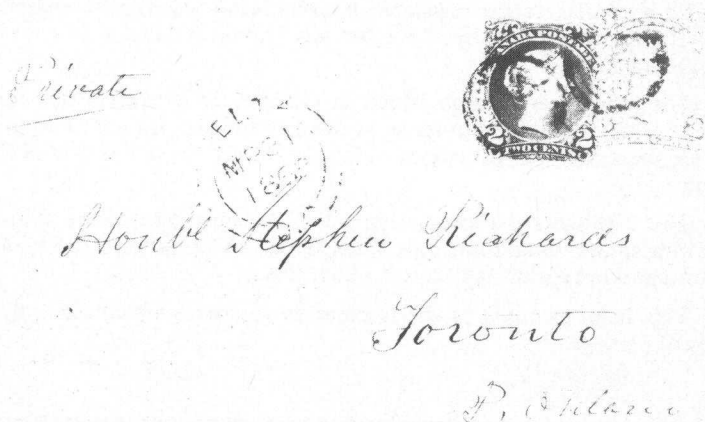 Private
CANADA POSTAGE
2 2
TWO CENTS
MR 31
Honbl Stephen Richards
Toronto
P. Ontario